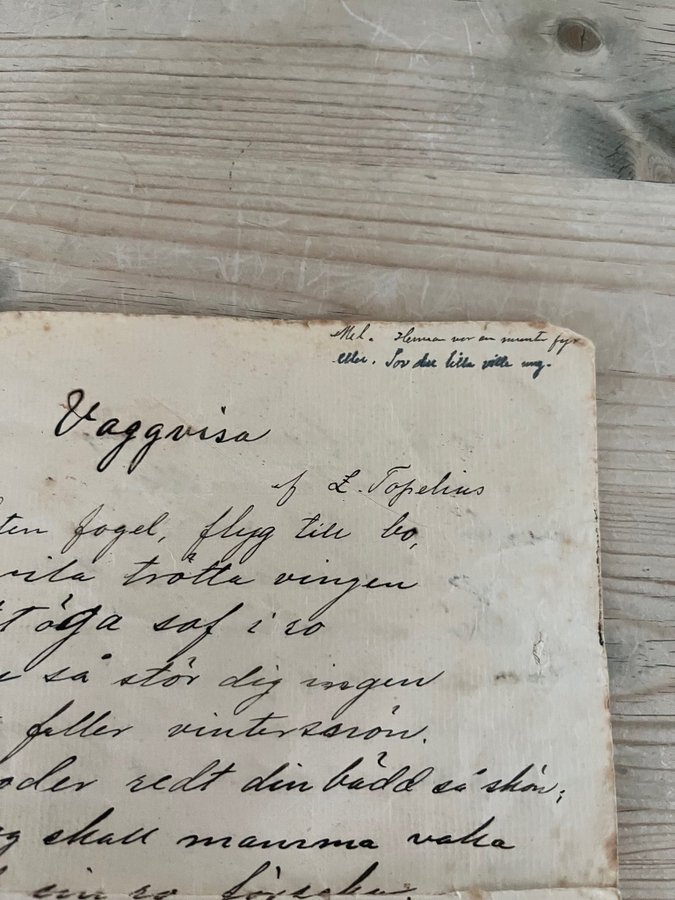 Mel. Herman var en munter fyr
eller. Sov du lilla vilde ung.
Vaggvisa
af Z. Topelius
ten fogel, flyg till bo,
vila trötta vingen
öga sof i ro
så stör dig ingen
faller vintersnön.
oder redt din bädd så skön;
skall mamma vaka
din ro